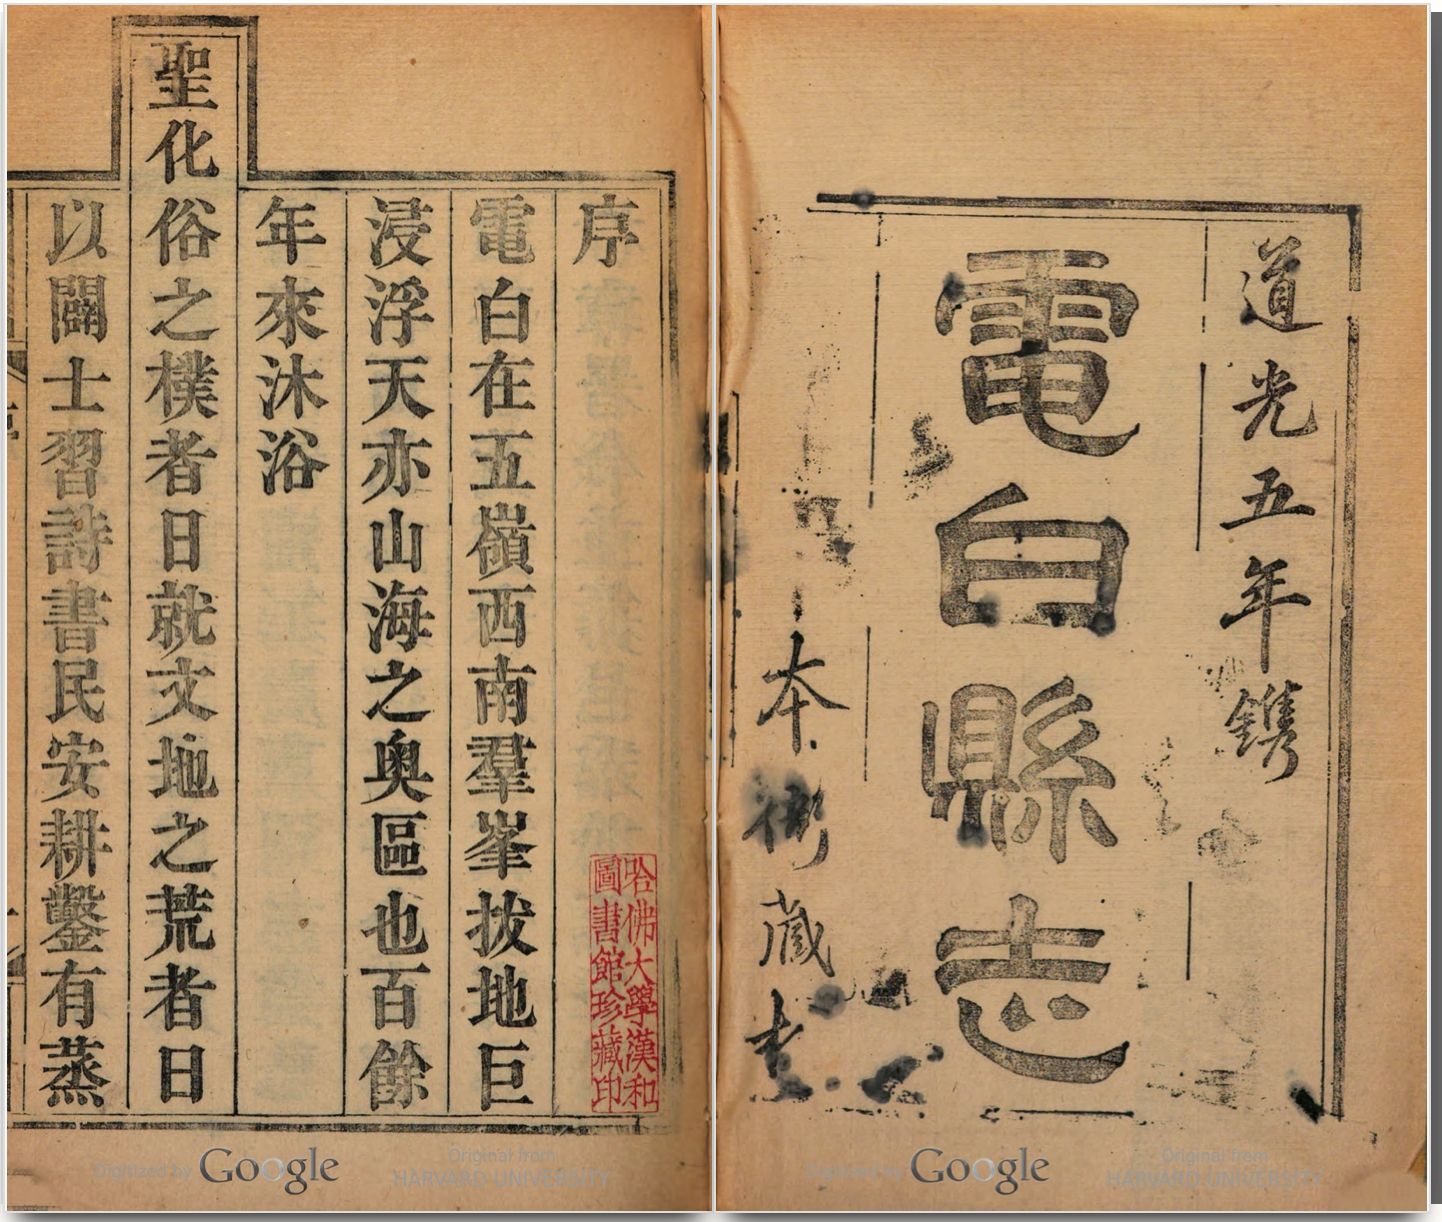 道光五年鐫
電白縣志
本衙藏
序
電白在五嶺西南羣峯拔地巨
浸浮天亦山海之奥區也百餘
年來沐浴
聖化俗之樸者日就文地之荒者日
以闢士習詩書民安耕鑿有蒸
哈佛大學漢和
圖書館珍藏印
Digitized by Google
Original from
HARVARD UNIVERSITY
Digitized by Google
Original from
HARVARD UNIVERSITY